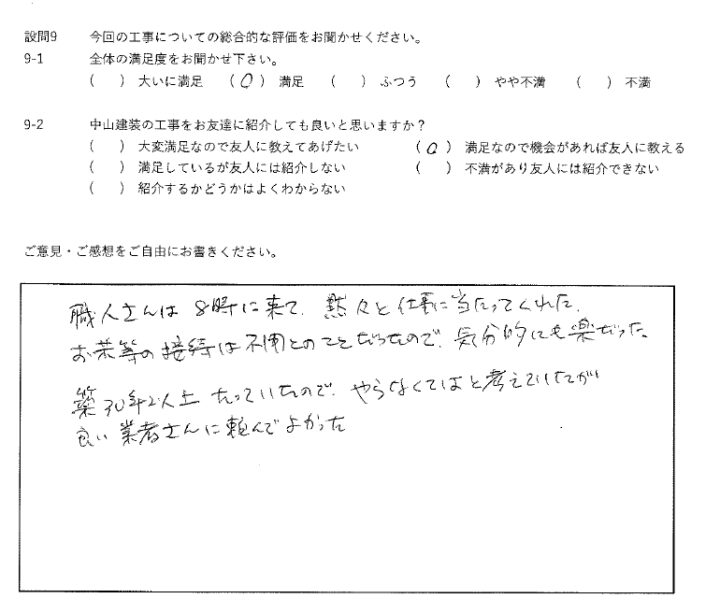 設問9 今回の工事についての総合的な評価をお聞かせください。
9-1 全体の満足度をお聞かせ下さい。
( ) 大いに満足 (○) 満足 ( ) ふつう ( ) やや不満 ( ) 不満
9-2 中山建装の工事をお友達に紹介しても良いと思いますか？
( ) 大変満足なので友人に教えてあげたい (○) 満足なので機会があれば友人に教える
( ) 満足しているが友人には紹介しない ( ) 不満があり友人には紹介できない
( ) 紹介するかどうかはよくわからない
ご意見・ご感想をご自由にお書きください。
職人さんは8時に来て、黙々と仕事に当たってくれた。
お茶等の接待は不用とのことだったので、気分的にも楽だった。
築30年以上たっていたので、やらなくてはと考えていたが
良い業者さんに頼んでよかった